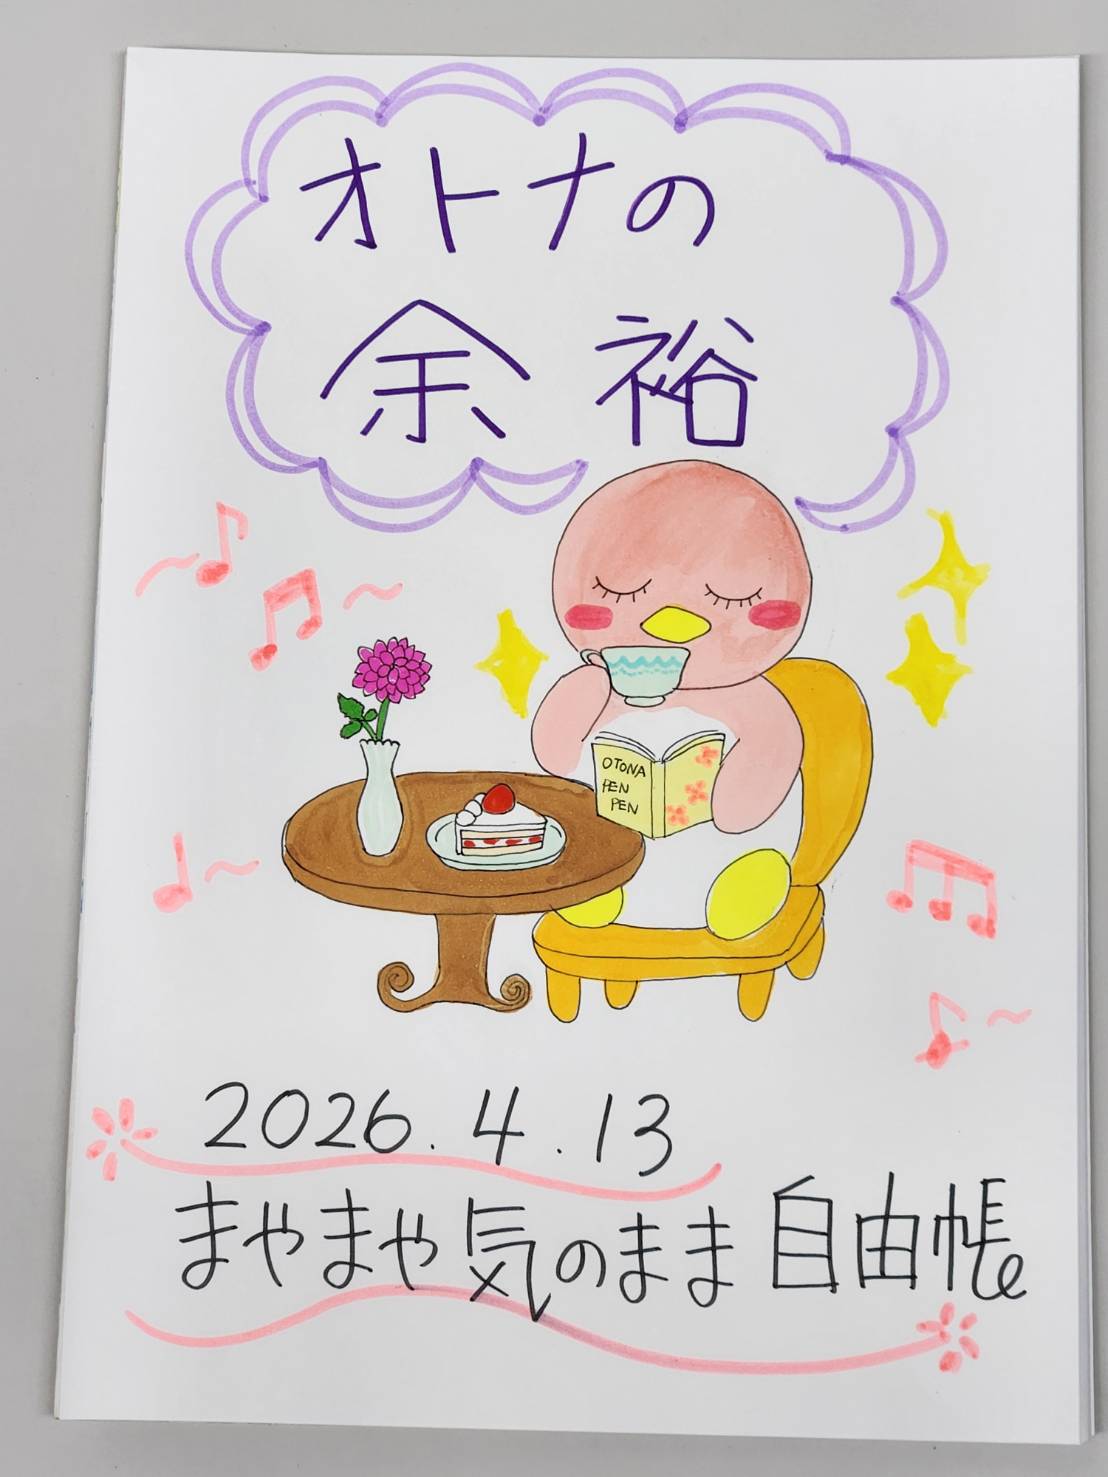 オトナの
余裕
OTONA
PEN
PEN
2026.4.13
まやまや気のまま自由帳